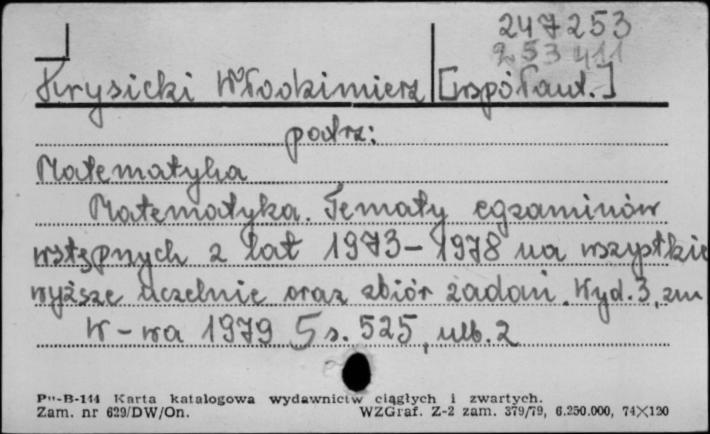 247253
253411
Krysicki Włodzimierz [współaut.]
patrz:
Matematyka
Matematyka. Tematy egzaminów
wstępnych z lat 1973-1978 na wszystkie
wyższe uczelnie oraz zbiór zadań. Wyd. 3, zm
W-wa 1979 s. 525, nlb. 2
Pu-B-144 Karta katalogowa wydawnictw ciągłych i zwartych.
Zam. nr 629/DW/On. WZGraf. Z-2 zam. 379/79, 6.250.000, 74×120